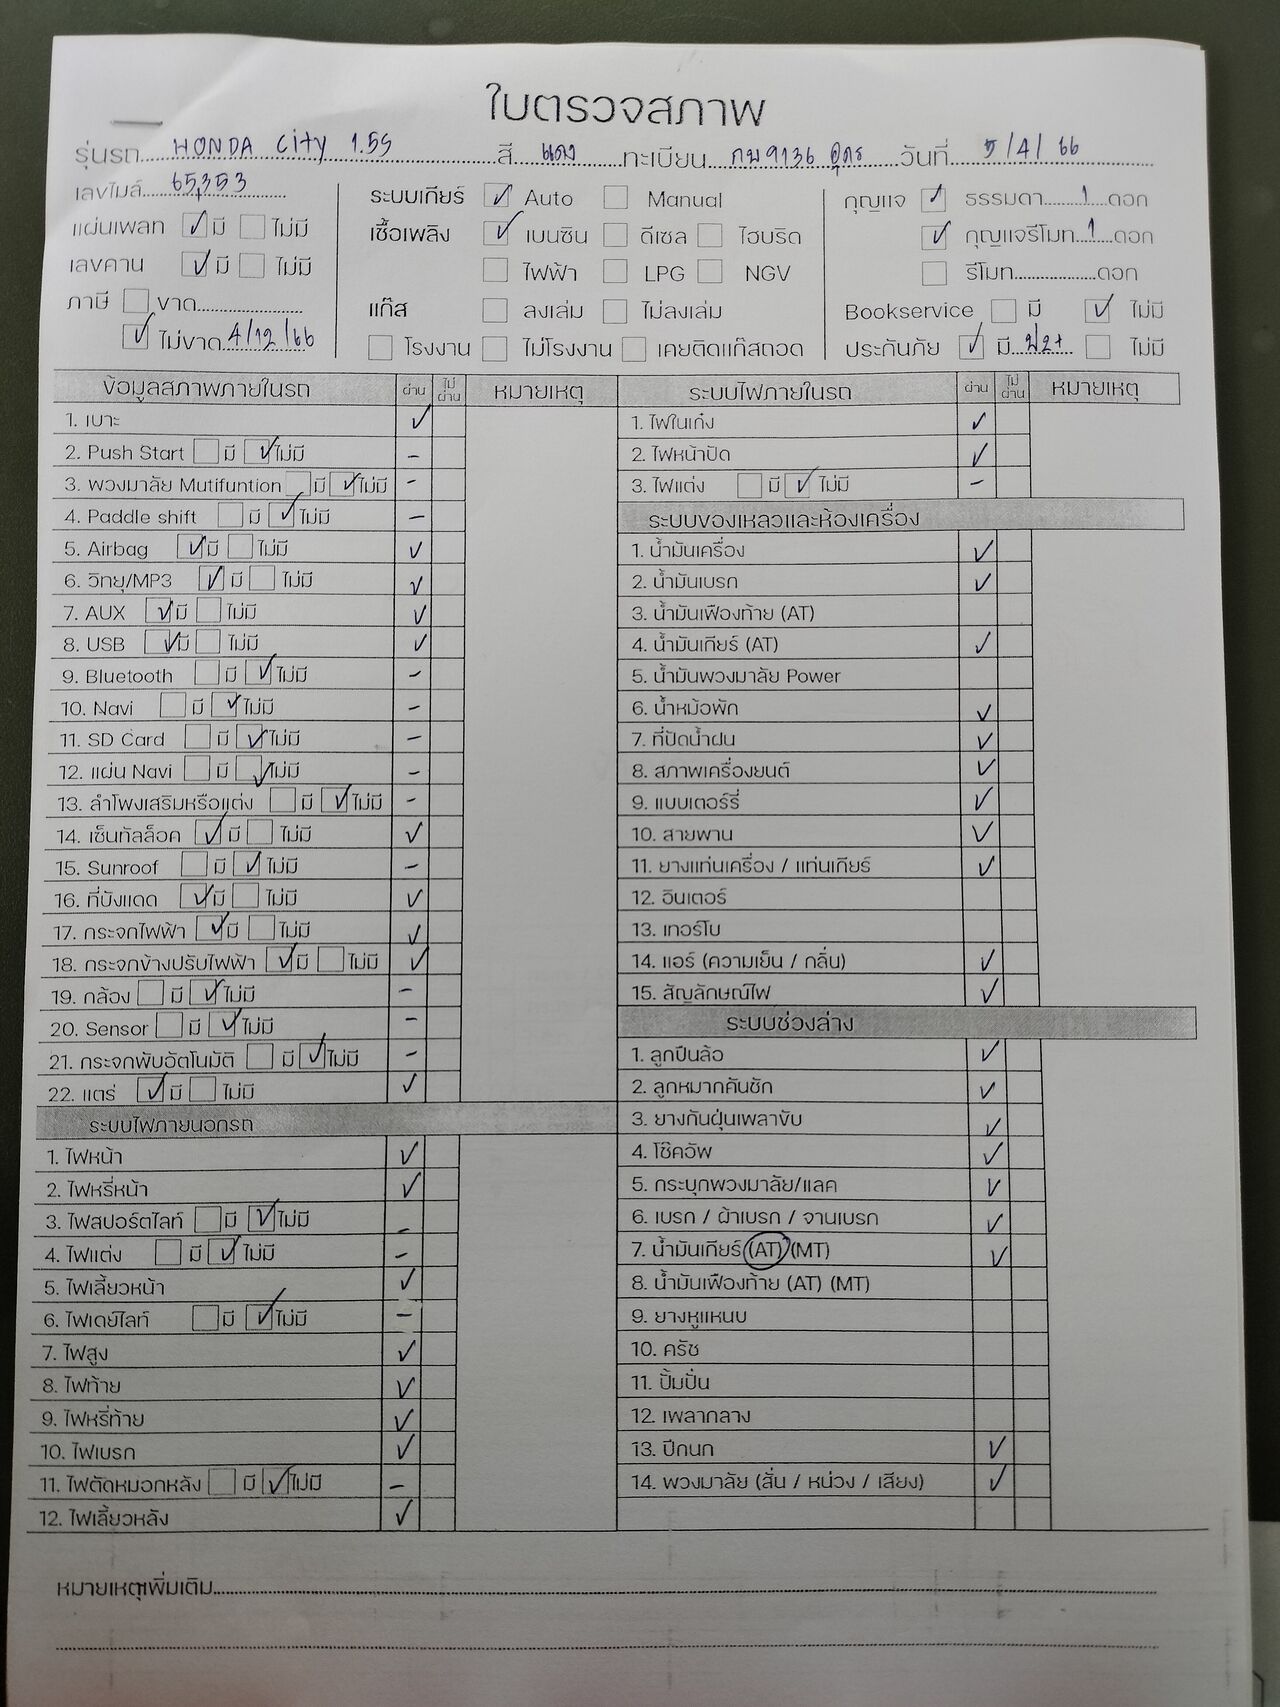 ใบตรวจสภาพ
รุ่นรถ HONDA City 1.5S สี แดง ทะเบียน กษ9136 อุดร วันที่ 5/4/66
เลขไมล์ 65,353
แผ่นเพลท ☑ มี ☐ ไม่มี
เลขคาน ☑ มี ☐ ไม่มี
ภาษี ☐ ขาด
☑ ไม่ขาด 4/12/66
ระบบเกียร์ ☑ Auto ☐ Manual
เชื้อเพลิง ☑ เบนซิน ☐ ดีเซล ☐ ไฮบริด
☐ ไฟฟ้า ☐ LPG ☐ NGV
แก๊ส ☐ ลงเล่ม ☐ ไม่ลงเล่ม
☐ โรงงาน ☐ ไม่โรงงาน ☐ เคยติดแก๊สถอด
กุญแจ ☑ ธรรมดา 1 ดอก
☑ กุญแจรีโมท 1 ดอก
☐ รีโมท ดอก
Bookservice ☐ มี ☑ ไม่มี
ประกันภัย ☑ มี ป2+ ☐ ไม่มี
ข้อมูลสภาพภายในรถ ผ่าน ไม่ผ่าน หมายเหตุ
1. เบาะ ✓
2. Push Start ☐ มี ☑ ไม่มี -
3. พวงมาลัย Mutifuntion ☐ มี ☑ ไม่มี -
4. Paddle shift ☐ มี ☑ ไม่มี -
5. Airbag ☑ มี ☐ ไม่มี ✓
6. วิทยุ/MP3 ☑ มี ☐ ไม่มี ✓
7. AUX ☑ มี ☐ ไม่มี ✓
8. USB ☑ มี ☐ ไม่มี ✓
9. Bluetooth ☐ มี ☑ ไม่มี -
10. Navi ☐ มี ☑ ไม่มี -
11. SD Card ☐ มี ☑ ไม่มี -
12. แผ่น Navi ☐ มี ☑ ไม่มี -
13. ลำโพงเสริมหรือแต่ง ☐ มี ☑ ไม่มี -
14. เซ็นทัลล็อค ☑ มี ☐ ไม่มี ✓
15. Sunroof ☐ มี ☑ ไม่มี -
16. ที่บังแดด ☑ มี ☐ ไม่มี ✓
17. กระจกไฟฟ้า ☑ มี ☐ ไม่มี ✓
18. กระจกข้างปรับไฟฟ้า ☑ มี ☐ ไม่มี ✓
19. กล้อง ☐ มี ☑ ไม่มี -
20. Sensor ☐ มี ☑ ไม่มี -
21. กระจกพับอัตโนมัติ ☐ มี ☑ ไม่มี -
22. แตร่ ☑ มี ☐ ไม่มี ✓
ระบบไฟภายนอกรถ
1. ไฟหน้า ✓
2. ไฟหรี่หน้า ✓
3. ไฟสปอร์ตไลท์ ☐ มี ☑ ไม่มี -
4. ไฟแต่ง ☐ มี ☑ ไม่มี -
5. ไฟเลี้ยวหน้า ✓
6. ไฟเดย์ไลท์ ☐ มี ☑ ไม่มี -
7. ไฟสูง ✓
8. ไฟท้าย ✓
9. ไฟหรี่ท้าย ✓
10. ไฟเบรก ✓
11. ไฟตัดหมอกหลัง ☐ มี ☑ ไม่มี -
12. ไฟเลี้ยวหลัง ✓
ระบบไฟภายในรถ ผ่าน ไม่ผ่าน หมายเหตุ
1. ไฟในเก๋ง ✓
2. ไฟหน้าปัด ✓
3. ไฟแต่ง ☐ มี ☑ ไม่มี -
ระบบของเหลวและห้องเครื่อง
1. น้ำมันเครื่อง ✓
2. น้ำมันเบรก ✓
3. น้ำมันเฟืองท้าย (AT)
4. น้ำมันเกียร์ (AT) ✓
5. น้ำมันพวงมาลัย Power
6. น้ำหม้อพัก ✓
7. ที่ปัดน้ำฝน ✓
8. สภาพเครื่องยนต์ ✓
9. แบบเตอร์รี่ ✓
10. สายพาน ✓
11. ยางแท่นเครื่อง / แท่นเกียร์ ✓
12. อินเตอร์
13. เทอร์โบ
14. แอร์ (ความเย็น / กลิ่น) ✓
15. สัญลักษณ์ไฟ ✓
ระบบช่วงล่าง
1. ลูกปืนล้อ ✓
2. ลูกหมากคันชัก ✓
3. ยางกันฝุ่นเพลาขับ ✓
4. โช๊คอัพ ✓
5. กระบุกพวงมาลัย/แลค ✓
6. เบรก / ผ้าเบรก / จานเบรก ✓
7. น้ำมันเกียร์ (AT) (MT) ✓
8. น้ำมันเฟืองท้าย (AT) (MT)
9. ยางหูแหนบ
10. ครัช
11. ปั้มปั่น
12. เพลากลาง
13. ปีกนก ✓
14. พวงมาลัย (สั่น / หน่วง / เสียง) ✓
หมายเหตุเพิ่มเติม